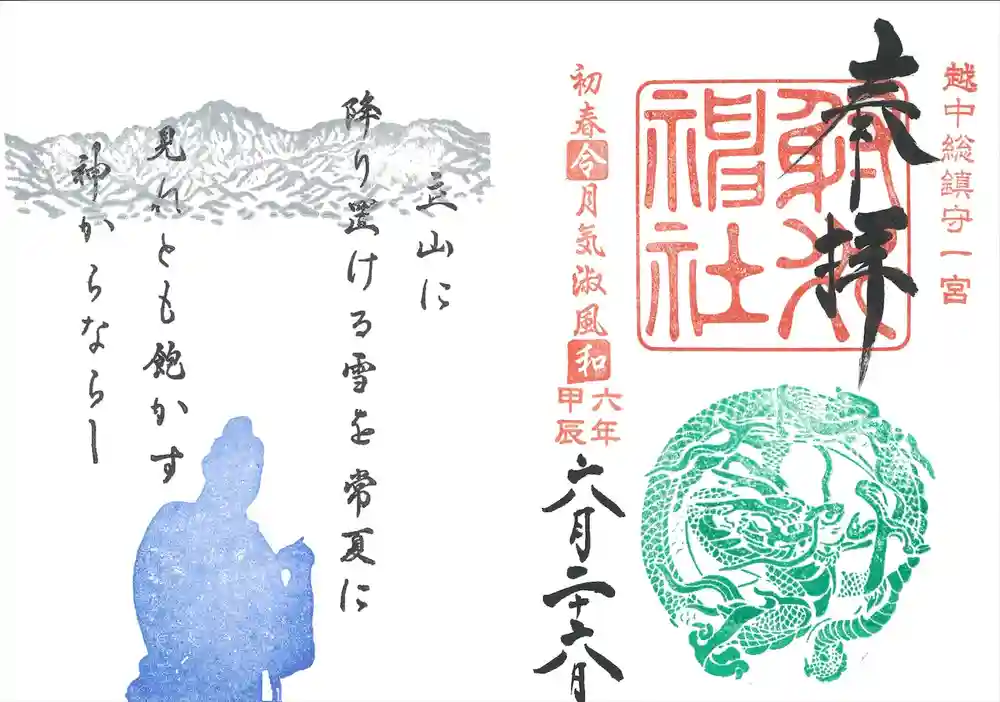 越中総鎮守一宮
奉拝
射水神社
初春令月気淑風和
六年
甲辰
六月二十六日
立山に
降り置ける雪を常夏に
見れとも飽かす
神からならし